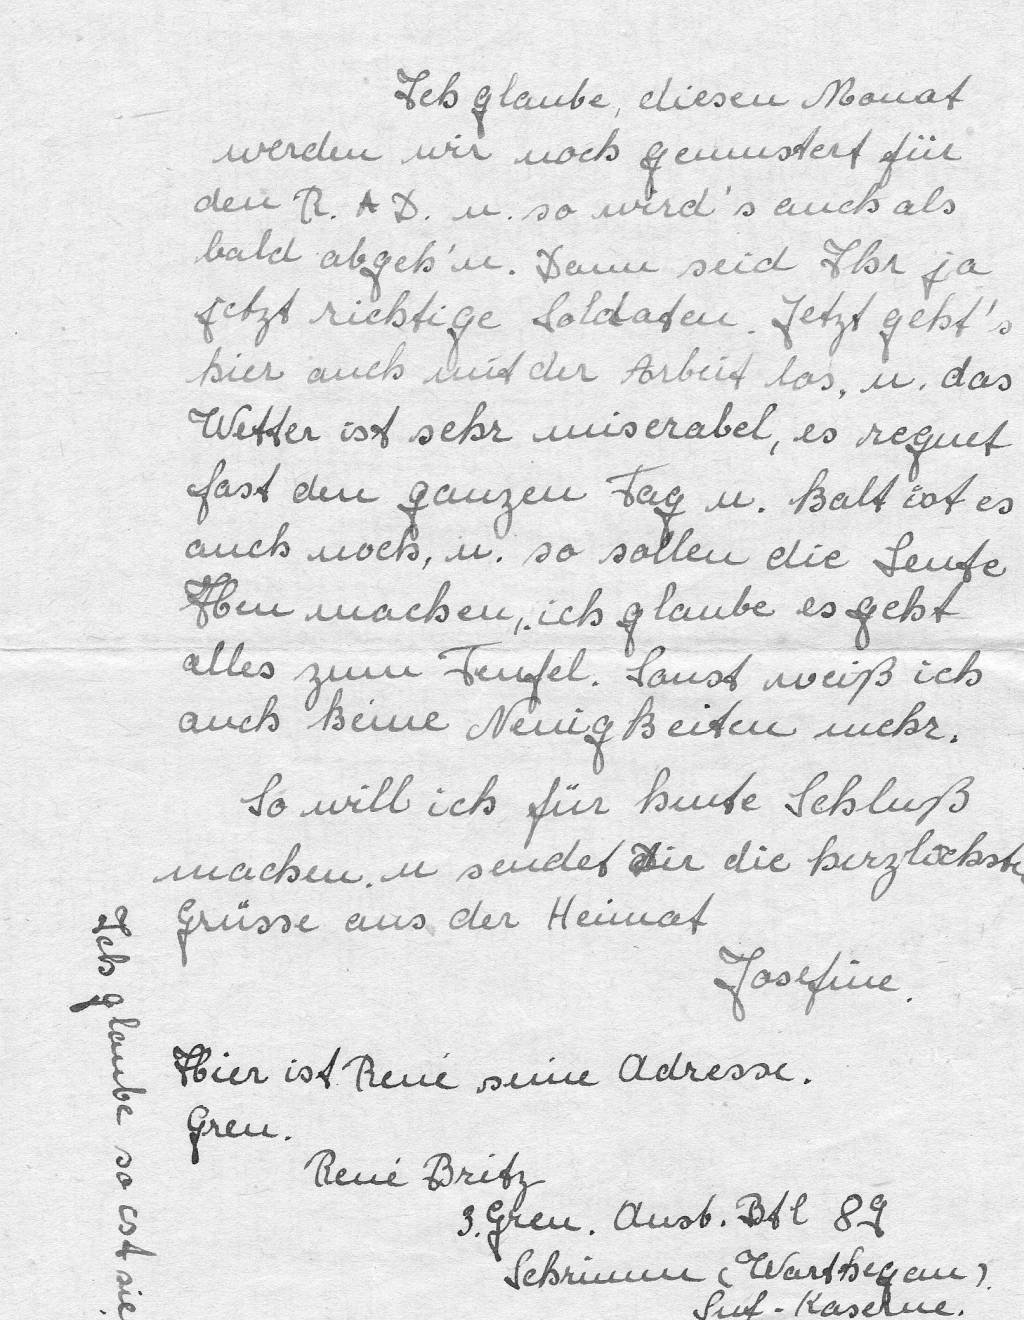 Ich glaube, diesen Monat
werden wir noch gemustert für
den R. A D. u. so wird's auch als
bald abgeh'n. Dann seid Ihr ja
jetzt richtige Soldaten. Jetzt geht's
hier auch mit der Arbeit los, u. das
Wetter ist sehr miserabel, es regnet
fast den ganzen Tag u. kalt ist es
auch noch, u. so sollen die Leute
Heu machen, ich glaube es geht
alles zum Teufel. Sonst weiß ich
auch keine Neuigkeiten mehr.
So will ich für heute Schluß
machen. u sendet Dir die herzlichste
Grüsse aus der Heimat
Josefine.
Hier ist René seine Adresse.
Gren.
René Britz
3. Gren. Ausb. Btl 89
Schrimm (Warthegau)
Inf-Kaserne.
Ich glaube so ist sie